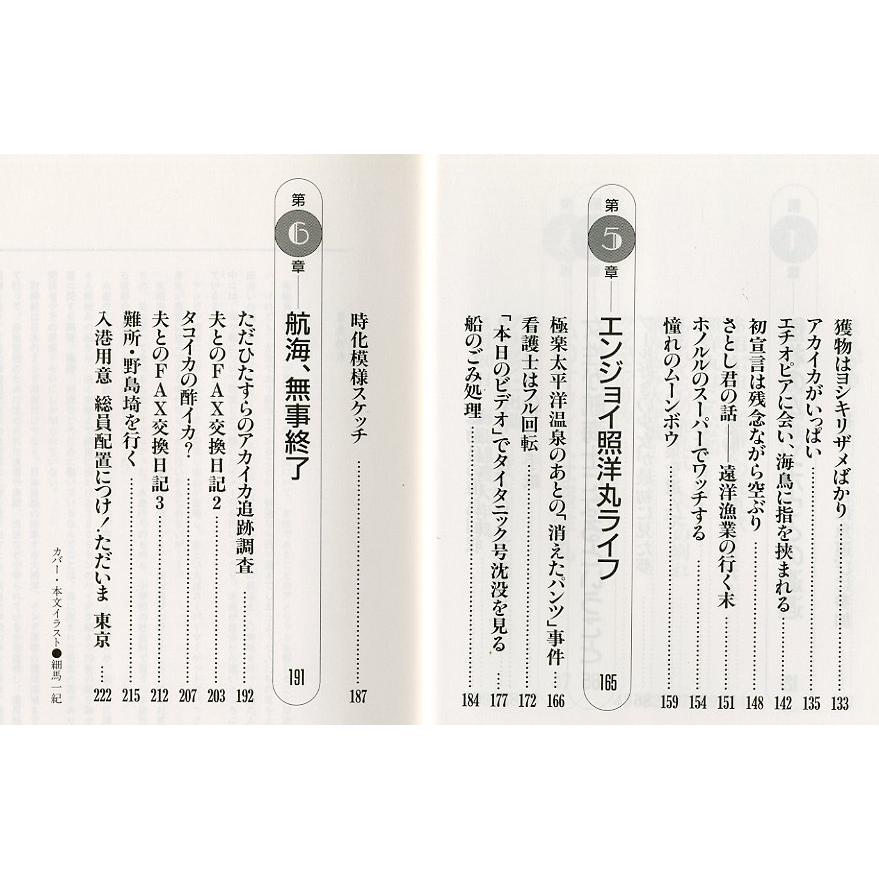 獲物はヨシキリザメばかり 133
アカイカがいっぱい 135
エチオピアに会い、海鳥に指を挟まれる 142
初宣言は残念ながら空ぶり 148
さとし君の話――遠洋漁業の行く末 151
ホノルルのスーパーでワッチする 154
憧れのムーンボウ 159
第5章――エンジョイ照洋丸ライフ 165
極楽太平洋温泉のあとの「消えたパンツ」事件 166
看護士はフル回転 172
「本日のビデオ」でタイタニック号沈没を見る 177
船のごみ処理 184
時化模様スケッチ 187
第6章――航海、無事終了 191
ただひたすらのアカイカ追跡調査 192
夫とのFAX交換日記2 203
タコイカの酢イカ? 207
夫とのFAX交換日記3 212
難所・野島埼を行く 215
入港用意 総員配置につけ!ただいま 東京 222
カバー・本文イラスト●細馬一紀